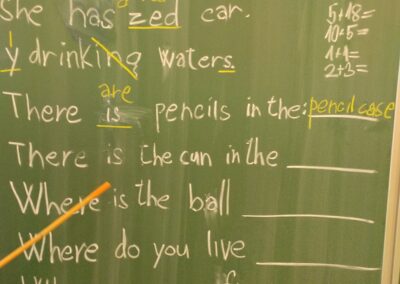 she has zed car.
y drinking waters.
are
There is pencils in the: pencil case
There is the can in the
Where is the ball
Where do you live
5+18=
10+5=
1+1=
2+3=